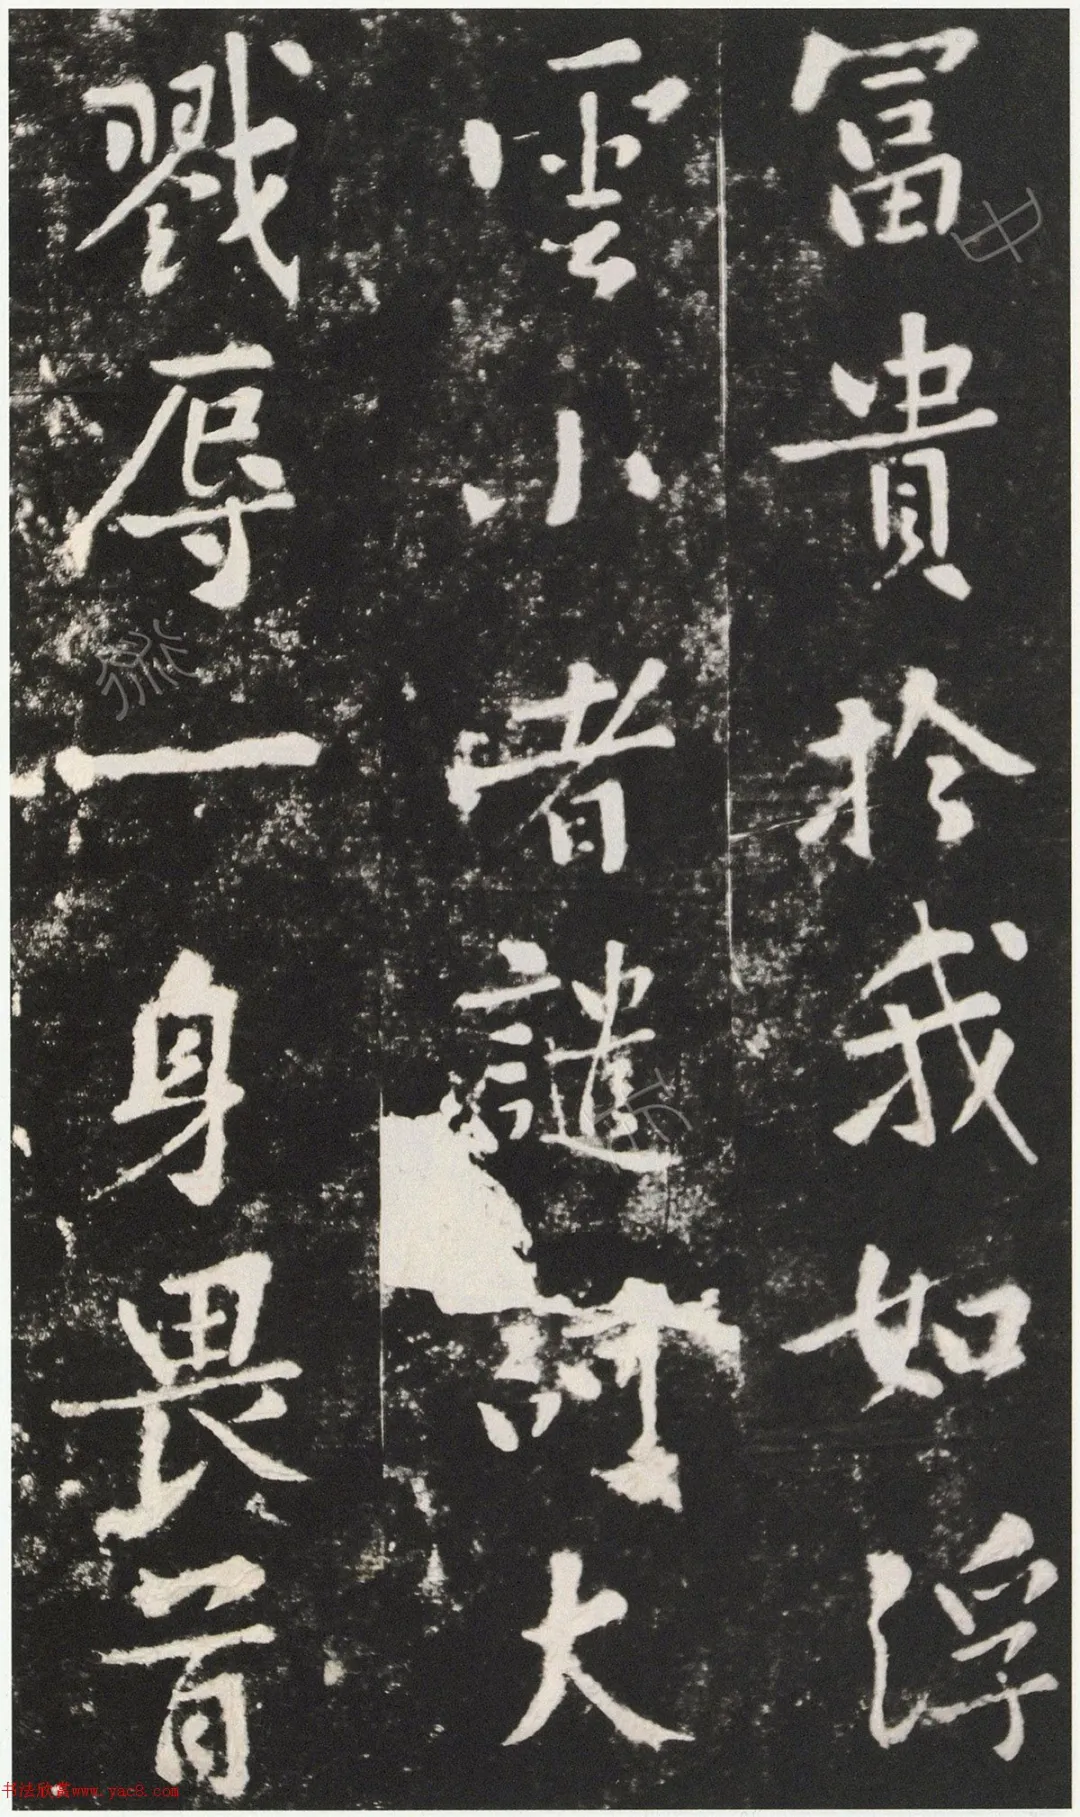 冨貴扵我如浮
雲小者譴訶大
戮辱一身畏首
书法欣赏www.yac8.com